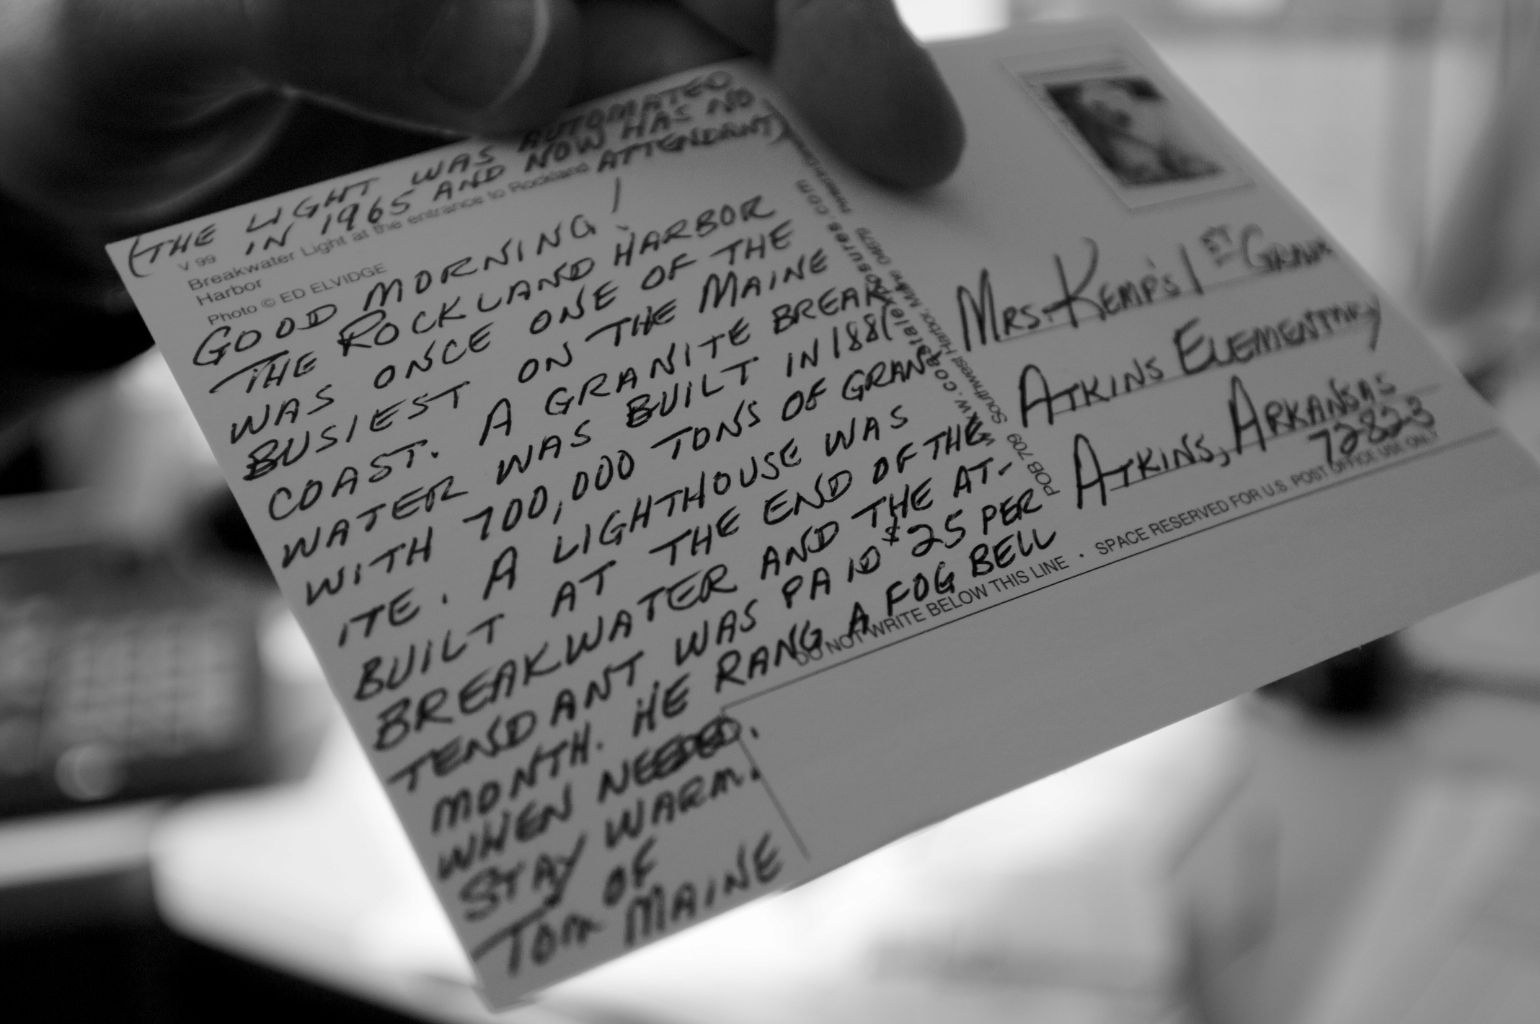 (THE LIGHT WAS AUTOMATED
IN 1965 AND NOW HAS NO
ATTENDANT)
V 99
Breakwater Light at the entrance to Rockland
Harbor
Photo © ED ELVIDGE
GOOD MORNING!
THE ROCKLAND HARBOR
WAS ONCE ONE OF THE
BUSIEST ON THE MAINE
COAST. A GRANITE BREAK-
WATER WAS BUILT IN 1881
WITH 700,000 TONS OF GRAN-
ITE. A LIGHTHOUSE WAS
BUILT AT THE END OF THE
BREAKWATER AND THE AT-
TENDANT WAS PAID $25 PER
MONTH. HE RANG A FOG BELL
WHEN NEEDED.
STAY WARM.
TOM OF
MAINE
POB 709 Southwest Harbor, Maine 04679
MRS. KEMP'S 1ST GRADE
ATKINS ELEMENTARY
ATKINS, ARKANSAS
72823
DO NOT WRITE BELOW THIS LINE • SPACE RESERVED FOR U.S. POST OFFICE USE ONLY